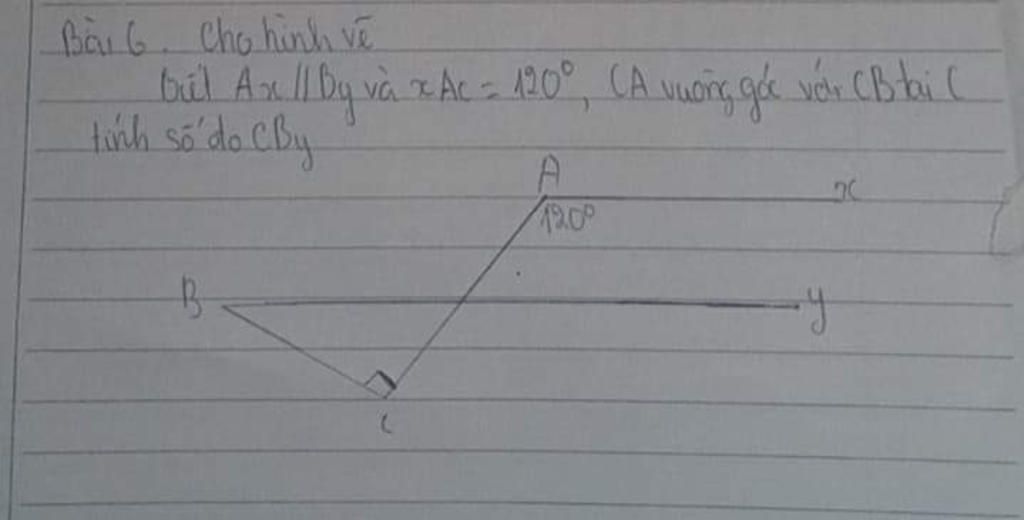 Bài 6. Cho hình vẽ
biết Ax//By và xAc = 120°, CA vuông góc với CB tại C
tính số đo CBy
A
x
120°
B
y
C